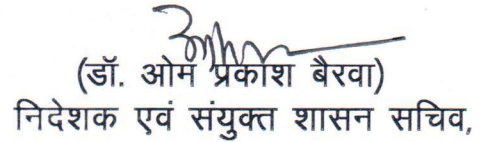 (डॉ. ओम प्रकाश बैरवा)
निदेशक एवं संयुक्त शासन सचिव,